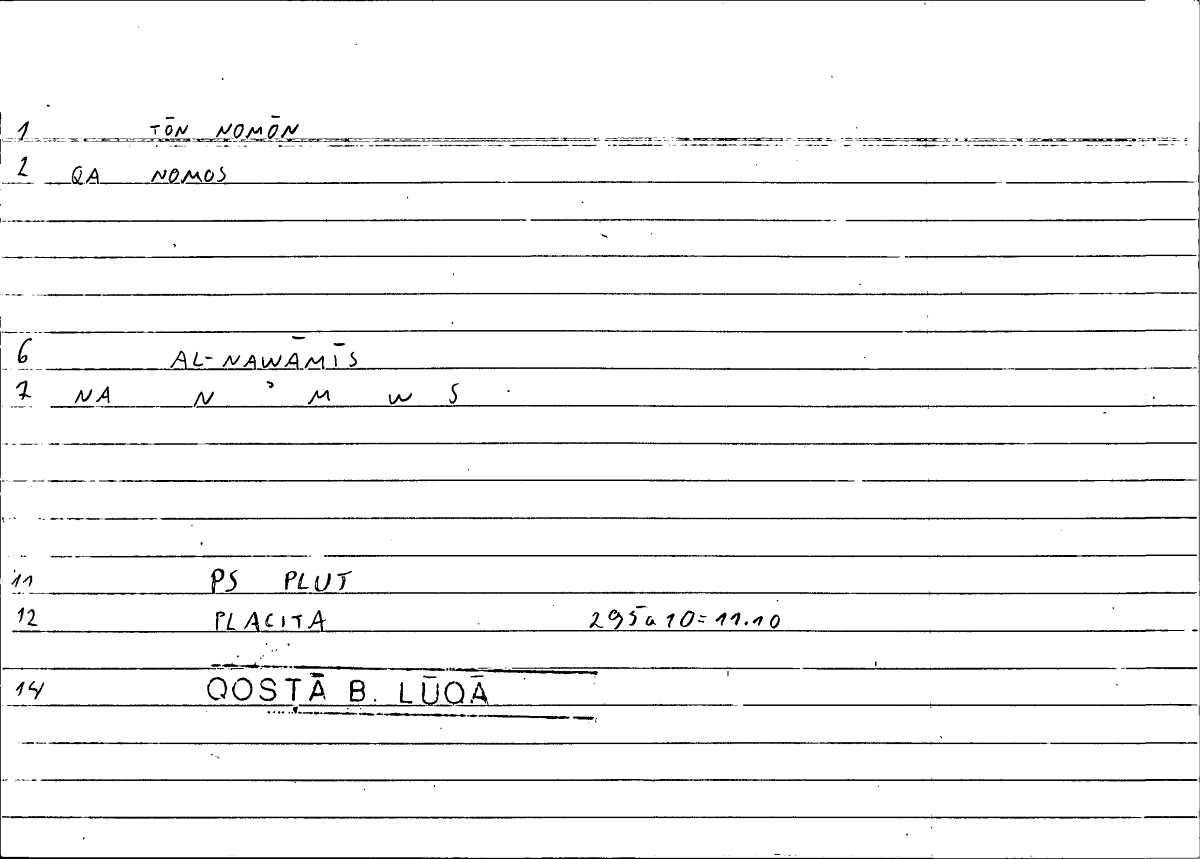 1 TŌN NOMŌN
2 QA NOMOS
6 AL-NAWĀMĪS
7 NA N ʾ M W S
11 PS PLUT
12 PLACITA 295a10=11.10
14 QOSṬĀ B. LŪQĀ